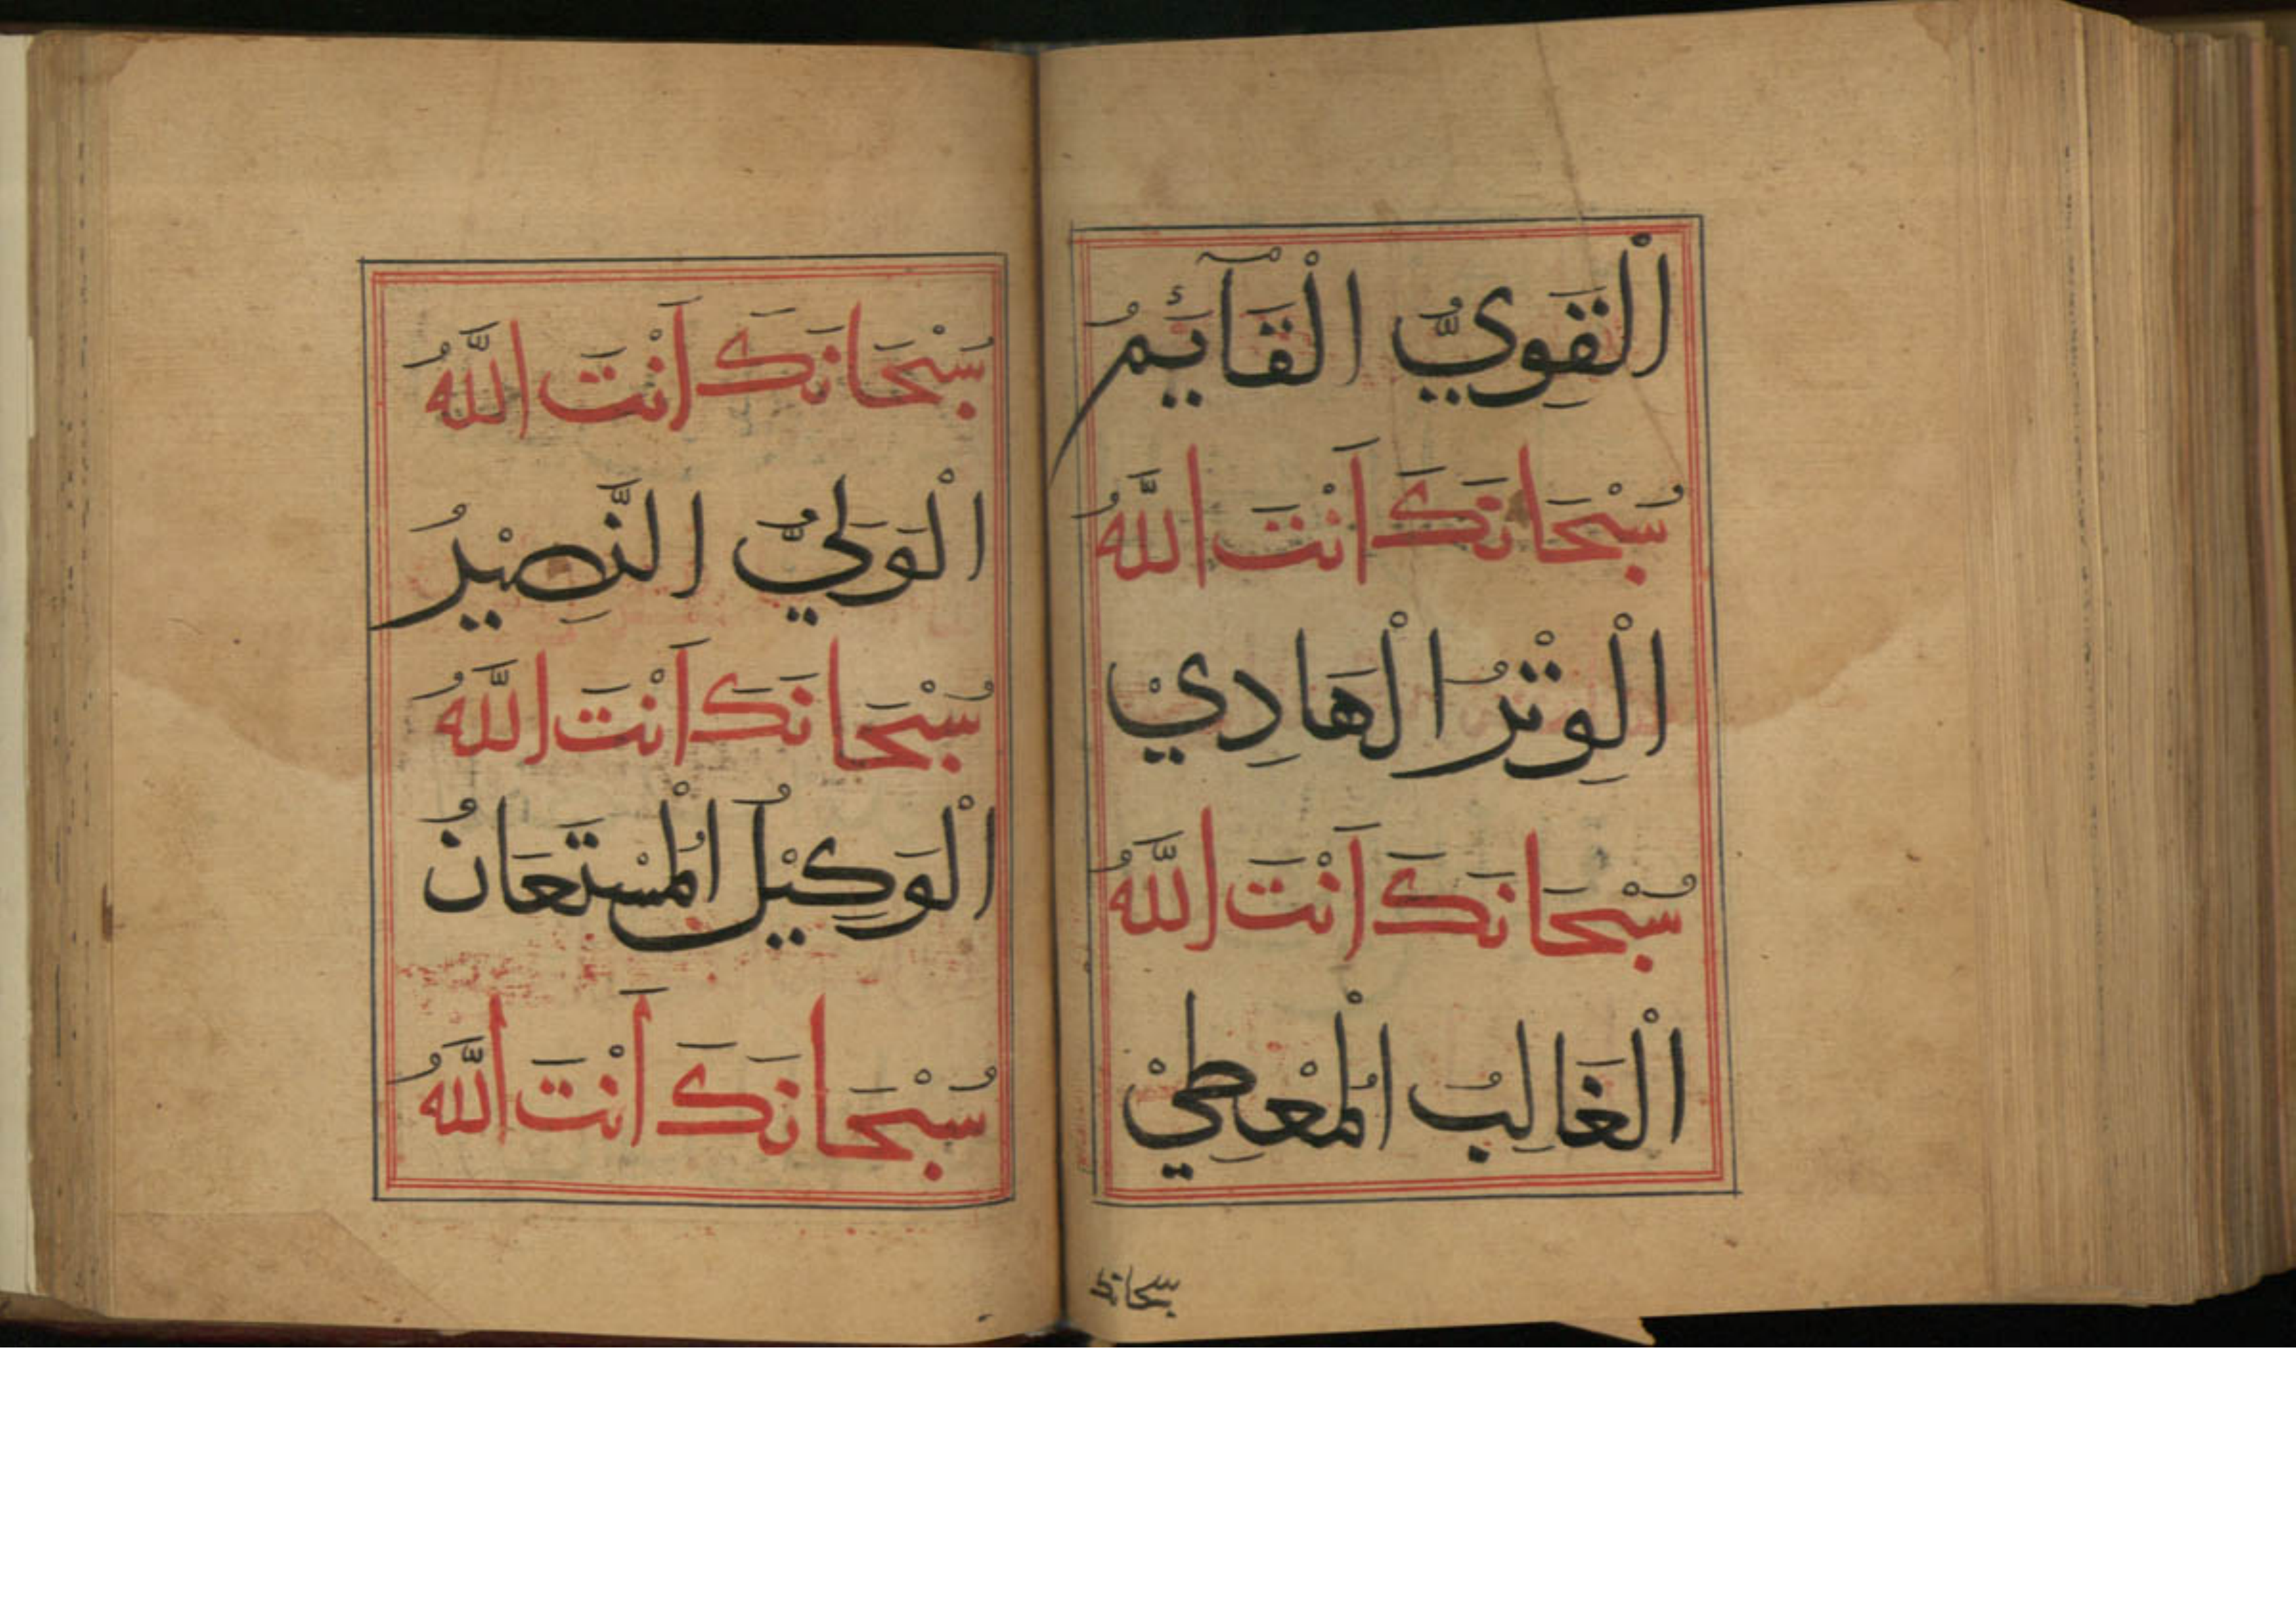 اَلْقَوِيُّ الْقَآئِمُ
سُبْحَانَكَ اَنْتَ اللَّهُ
اَلْوِتْرُ الْهَادِيْ
سُبْحَانَكَ اَنْتَ اللَّهُ
اَلْغَالِبُ الْمُعْطِيْ
سبحانك
سُبْحَانَكَ اَنْتَ اللَّهُ
الْوَلِيُّ النَّصِيْرُ
سُبْحَانَكَ اَنْتَ اللَّهُ
الْوَكِيْلُ الْمُسْتَعَانُ
سُبْحَانَكَ اَنْتَ اللَّهُ